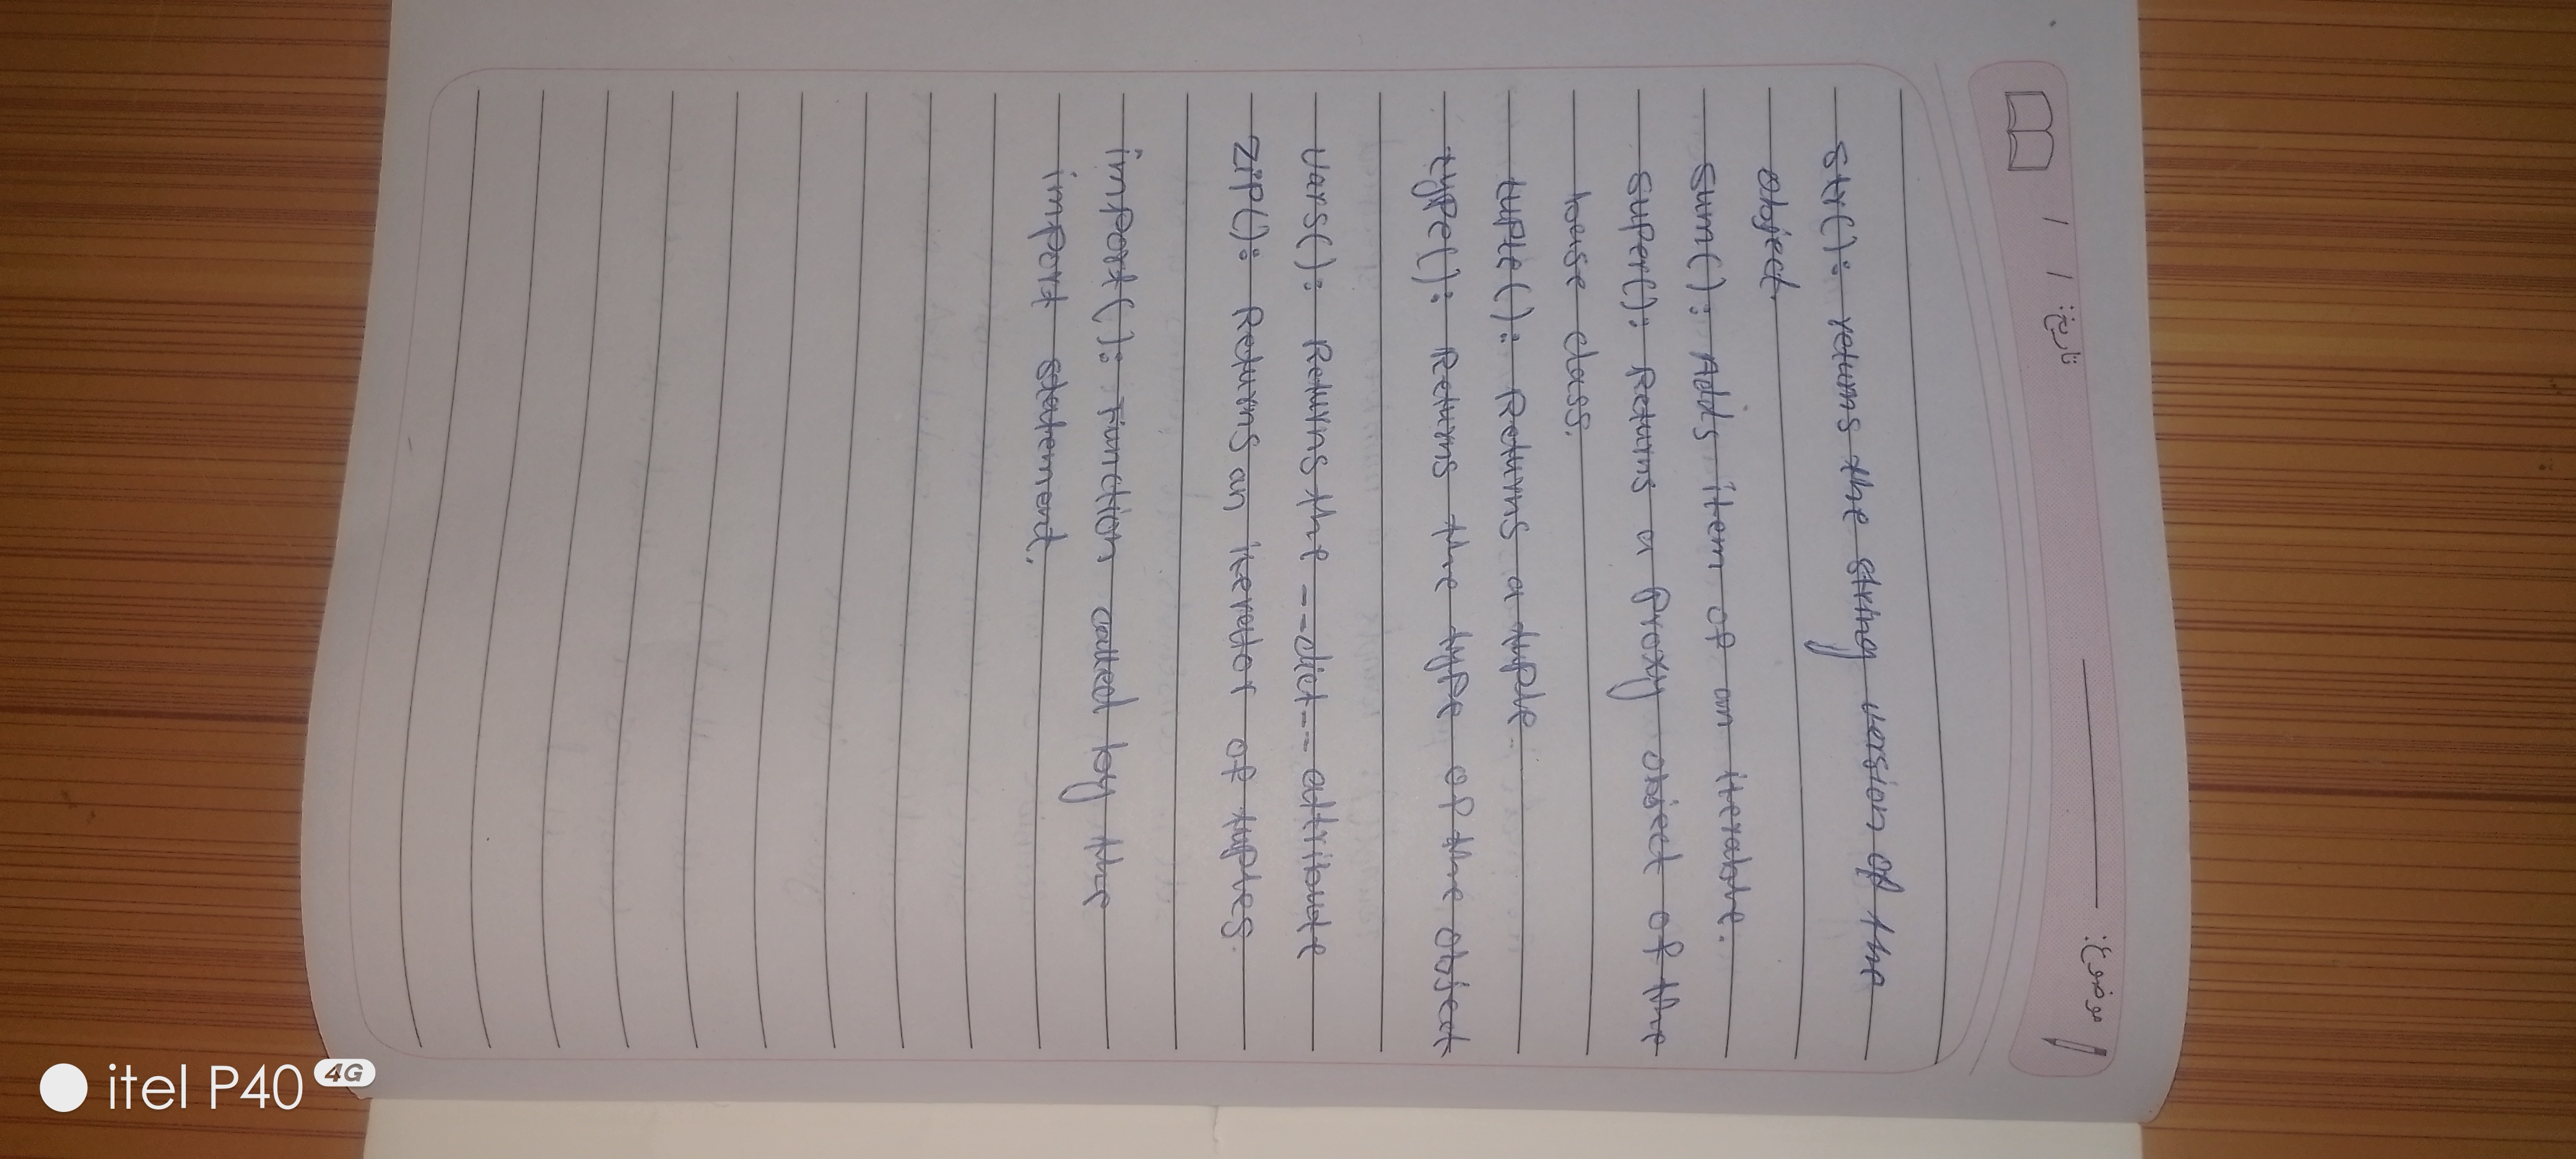 موضوع:
تاریخ: / /
str(): returns the string version of the
object.
sum(): Adds item of an iterable.
super(): Returns a proxy object of the
base class.
tuple(): Returns a tuple
type(): Returns the type of the object
vars(): Returns the __dict__ attribute
zip(): Returns an iterator of tuples.
import(): Function called by the
import statement.
itel P40 4G